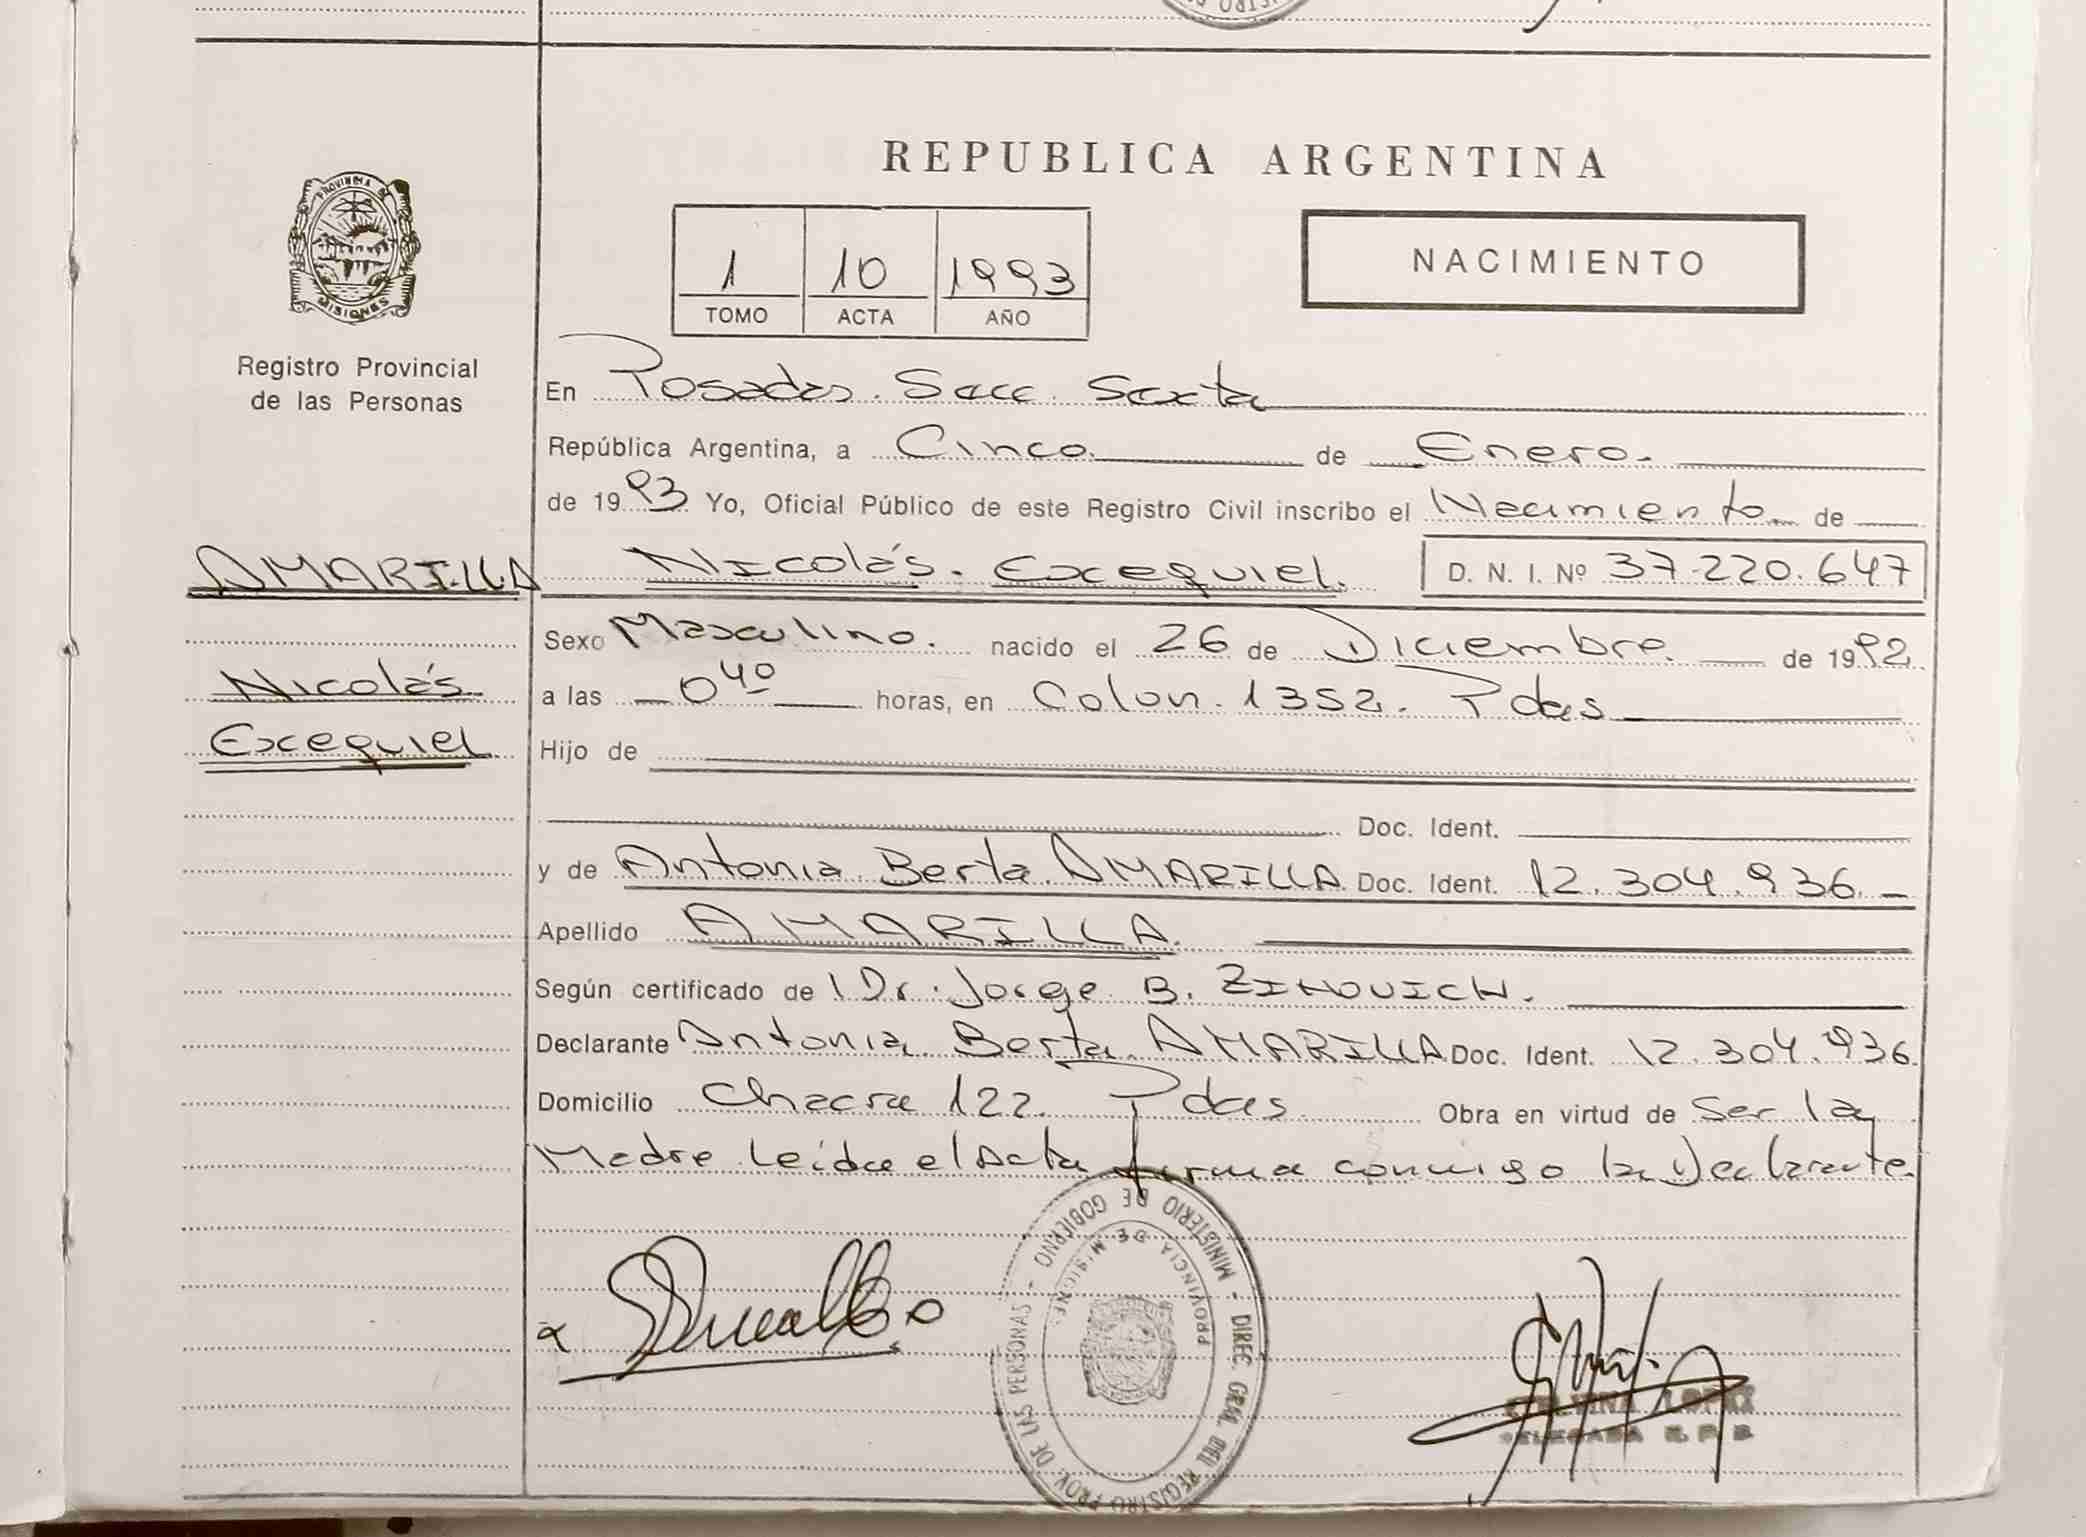 REPUBLICA ARGENTINA
PROVINCIA DE
MISIONES
Registro Provincial
de las Personas
1 10 1993
TOMO ACTA AÑO
NACIMIENTO
En Posadas. Secc. Sexta
República Argentina, a Cinco. de Enero.
de 1993 Yo, Oficial Público de este Registro Civil inscribo el Nacimiento de
AMARILLA Nicolás. Exequiel. D. N. I. Nº 37.220.647
Sexo Masculino. nacido el 26 de Diciembre. de 1992
Nicolás
a las 0 40 horas, en Colon. 1352. Pdas
Exequiel
Hijo de
Doc. Ident.
y de Antonia Berta AMARILLA. Doc. Ident. 12.304.936.
Apellido AMARILLA.
Según certificado de Dr. Jorge B. ZINOVICH.
Declarante Antonia Berta AMARILLA Doc. Ident. 12.304.936.
Domicilio Chacra 122. Pdas Obra en virtud de Ser la
Madre Leída el Acta firma conmigo la Declarante
MINISTERIO DE GOBIERNO - DIREC. GRAL. DEL REGISTRO PROV. DE LAS PERSONAS -
PROVINCIA DE MISIONES
LOPEZ
DELEGADA